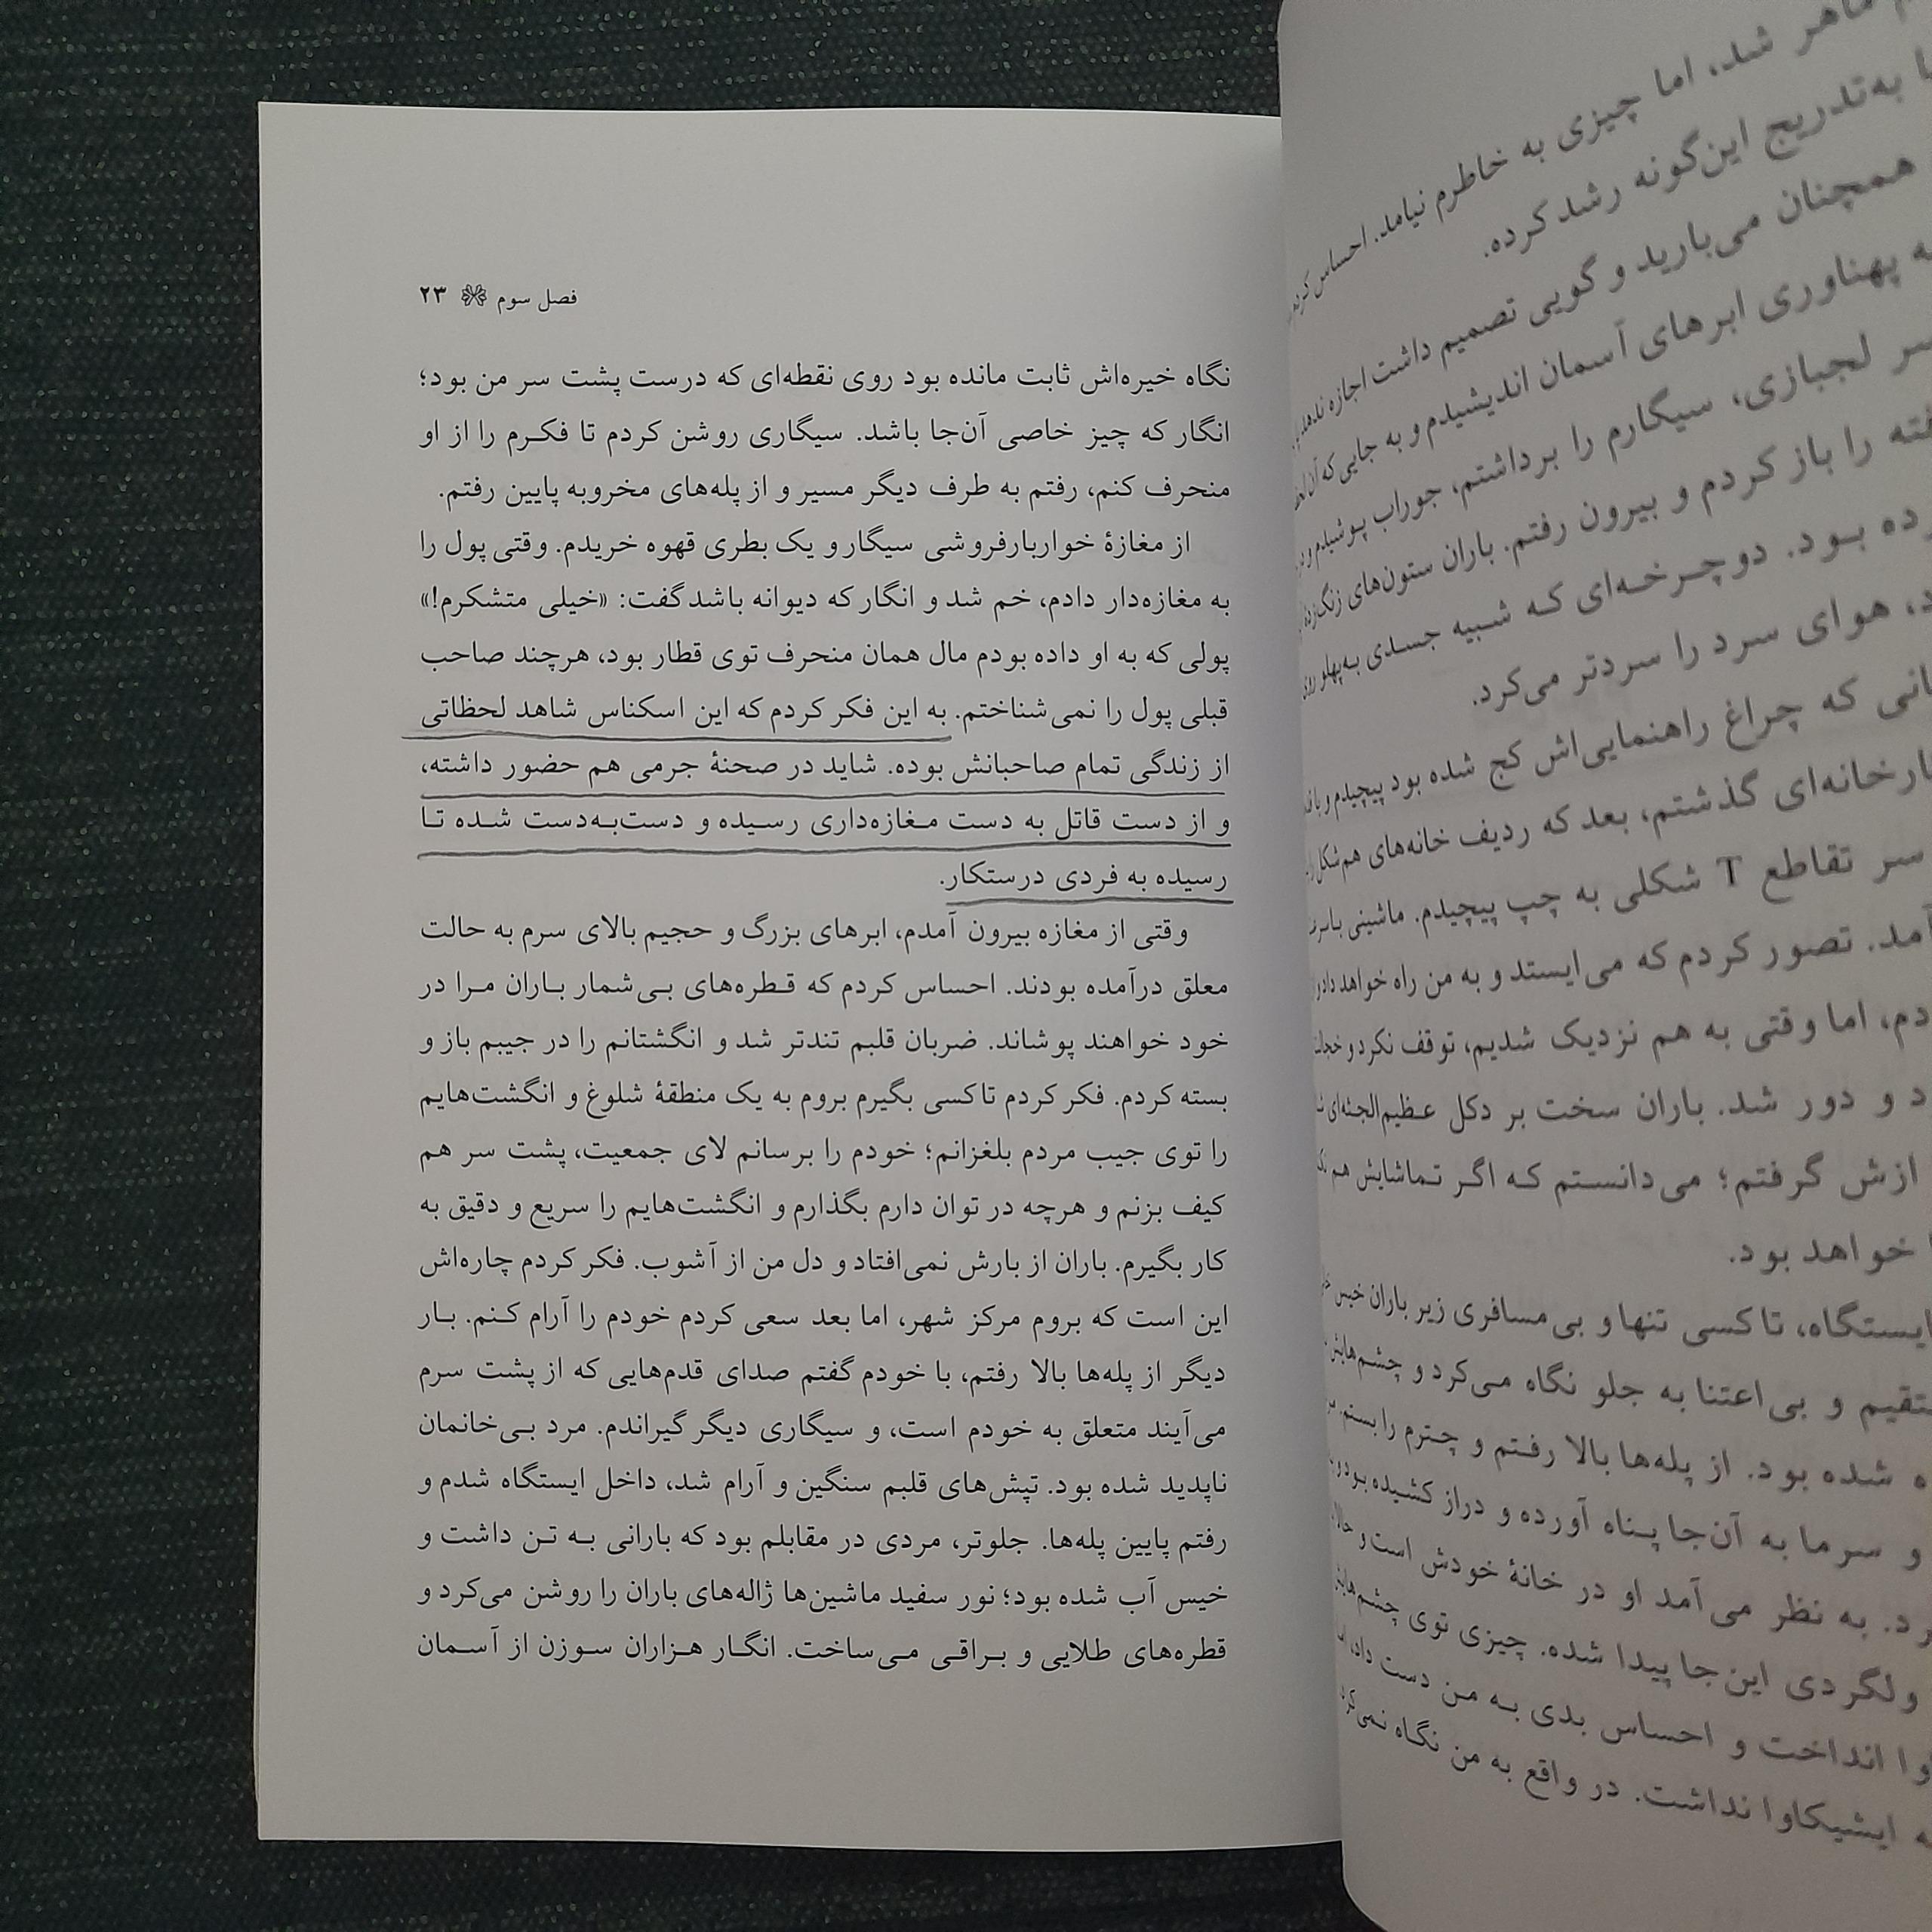 فصل سوم ۲۳
نگاه خیره‌اش ثابت مانده بود روی نقطه‌ای که درست پشت سر من بود؛
انگار که چیز خاصی آن‌جا باشد. سیگاری روشن کردم تا فکرم را از او
منحرف کنم، رفتم به طرف دیگر مسیر و از پله‌های مخروبه پایین رفتم.
از مغازهٔ خواربارفروشی سیگار و یک بطری قهوه خریدم. وقتی پول را
به مغازه‌دار دادم، خم شد و انگار که دیوانه باشد گفت: «خیلی متشکرم!»
پولی که به او داده بودم مال همان منحرف توی قطار بود، هرچند صاحب
قبلی پول را نمی‌شناختم. به این فکر کردم که این اسکناس شاهد لحظاتی
از زندگی تمام صاحبانش بوده. شاید در صحنهٔ جرمی هم حضور داشته،
و از دست قاتل به دست مغازه‌داری رسیده و دست‌به‌دست شده تا
رسیده به فردی درستکار.
وقتی از مغازه بیرون آمدم، ابرهای بزرگ و حجیم بالای سرم به حالت
معلق درآمده بودند. احساس کردم که قطره‌های بی‌شمار باران مرا در
خود خواهند پوشاند. ضربان قلبم تندتر شد و انگشتانم را در جیبم باز و
بسته کردم. فکر کردم تاکسی بگیرم بروم به یک منطقهٔ شلوغ و انگشت‌هایم
را توی جیب مردم بلغزانم؛ خودم را برسانم لای جمعیت، پشت سر هم
کیف بزنم و هرچه در توان دارم بگذارم و انگشت‌هایم را سریع و دقیق به
کار بگیرم. باران از بارش نمی‌افتاد و دل من از آشوب. فکر کردم چاره‌اش
این است که بروم مرکز شهر، اما بعد سعی کردم خودم را آرام کنم. بار
دیگر از پله‌ها بالا رفتم، با خودم گفتم صدای قدم‌هایی که از پشت سرم
می‌آیند متعلق به خودم است، و سیگاری دیگر گیراندم. مرد بی‌خانمان
ناپدید شده بود. تپش‌های قلبم سنگین و آرام شد، داخل ایستگاه شدم و
رفتم پایین پله‌ها. جلوتر، مردی در مقابلم بود که بارانی به تن داشت و
خیس آب شده بود؛ نور سفید ماشین‌ها ژاله‌های باران را روشن می‌کرد و
قطره‌های طلایی و براقی می‌ساخت. انگار هزاران سوزن از آسمان
ماهر شد، اما چیزی به خاطرم نیامد. احساس کردم
به‌تدریج این‌گونه رشد کرده.
همچنان می‌بارید و گویی تصمیم داشت اجازه ندهد
پهناوری ابرهای آسمان اندیشیدم و به جایی که آن
سر لجبازی، سیگارم را برداشتم، جوراب پوشیدم و
را باز کردم و بیرون رفتم. باران ستون‌های زنگ‌زده
بود. دوچرخه‌ای که شبیه جسدی به‌پهلو روی
هوای سرد را سردتر می‌کرد.
که چراغ راهنمایی‌اش کج شده بود پیچیدم و
گذشتم، بعد که ردیف خانه‌های هم‌شکل
سر تقاطع T شکلی به چپ پیچیدم. ماشینی
تصور کردم که می‌ایستد و به من راه خواهد داد
اما وقتی به هم نزدیک شدیم، توقف نکرد و
و دور شد. باران سخت بر دکل عظیم‌الجثه‌ای
ازش گرفتم؛ می‌دانستم که اگر تماشایش هم
خواهد بود.
ایستگاه، تاکسی تنها و بی‌مسافری زیر باران خیس
و بی‌اعتنا به جلو نگاه می‌کرد و چشم‌هایش
شده بود. از پله‌ها بالا رفتم و چترم را بستم.
و سرما به آن‌جا پناه آورده و دراز کشیده بود
به نظر می‌آمد او در خانهٔ خودش است و
ولگردی این‌جا پیدا شده. چیزی توی چشم‌هایش
انداخت و احساس بدی به من دست داد،
ایشیکاوا نداشت. در واقع به من نگاه نمی‌کرد